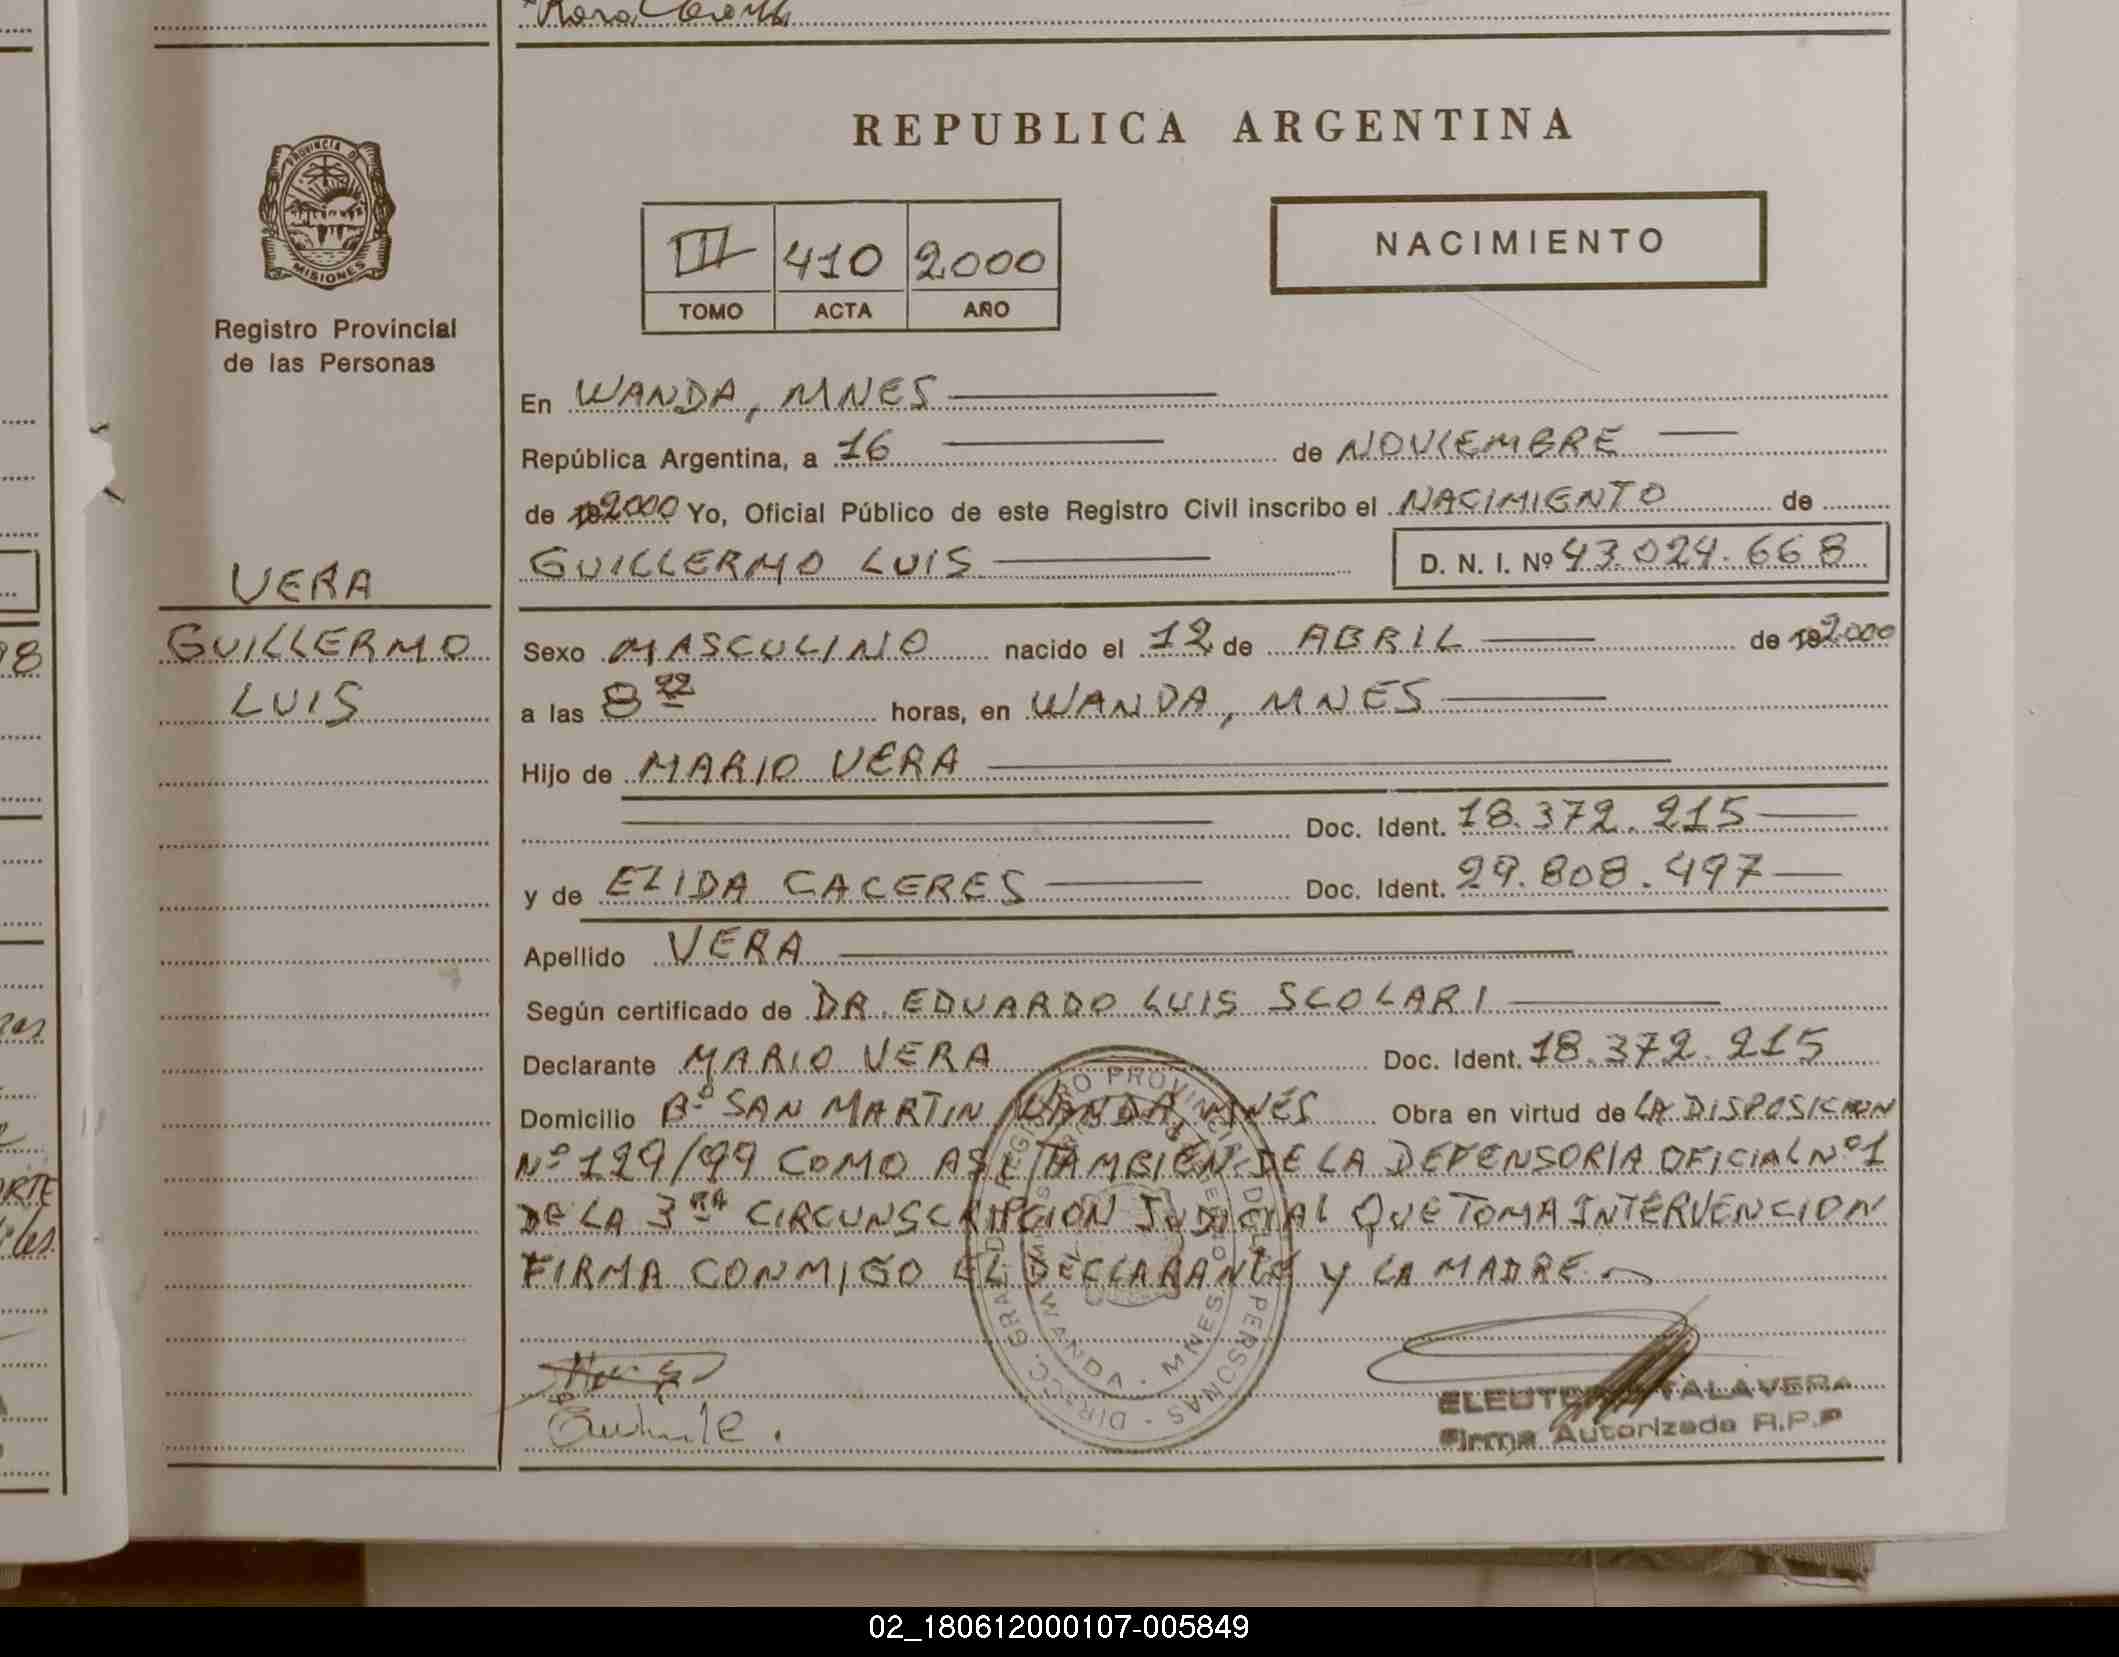 REPUBLICA ARGENTINA
PROVINCIA DE
MISIONES
Registro Provincial
de las Personas
III 410 2000
TOMO ACTA AÑO
NACIMIENTO
En WANDA, MNES
República Argentina, a 16 de NOVIEMBRE
de 2000 Yo, Oficial Público de este Registro Civil inscribo el NACIMIENTO de
GUILLERMO LUIS D. N. I. Nº 43.024.668
VERA
GUILLERMO
LUIS
Sexo MASCULINO nacido el 12 de ABRIL de 2000
a las 8 22 horas, en WANDA, MNES
Hijo de MARIO VERA
Doc. Ident. 18.372.215
y de ELIDA CACERES Doc. Ident. 29.808.497
Apellido VERA
Según certificado de DR. EDUARDO LUIS SCOLARI
Declarante MARIO VERA Doc. Ident. 18.372.215
Domicilio Bº SAN MARTIN WANDA MNES Obra en virtud de LA DISPOSICION
Nº 129/99 COMO ASI TAMBIEN DE LA DEFENSORIA OFICIAL Nº 1
DE LA 3RA CIRCUNSCRIPCION JUDICIAL QUE TOMA INTERVENCION
FIRMA CONMIGO EL DECLARANTE Y LA MADRE
WANDA - MNES
ELEUTERIO TALAVERA
Firma Autorizada R.P.P
02_180612000107-005849